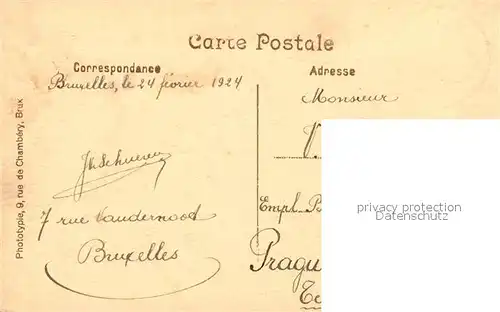 Carte Postale
Correspondance
Adresse
Bruxelles, le 24 février 1924
Monsieur
V.
7 rue Vandernoot
Bruxelles
Empl.
Pragu
Phototypie, 9, rue de Chambéry, Brux
privacy protection
Datenschutz